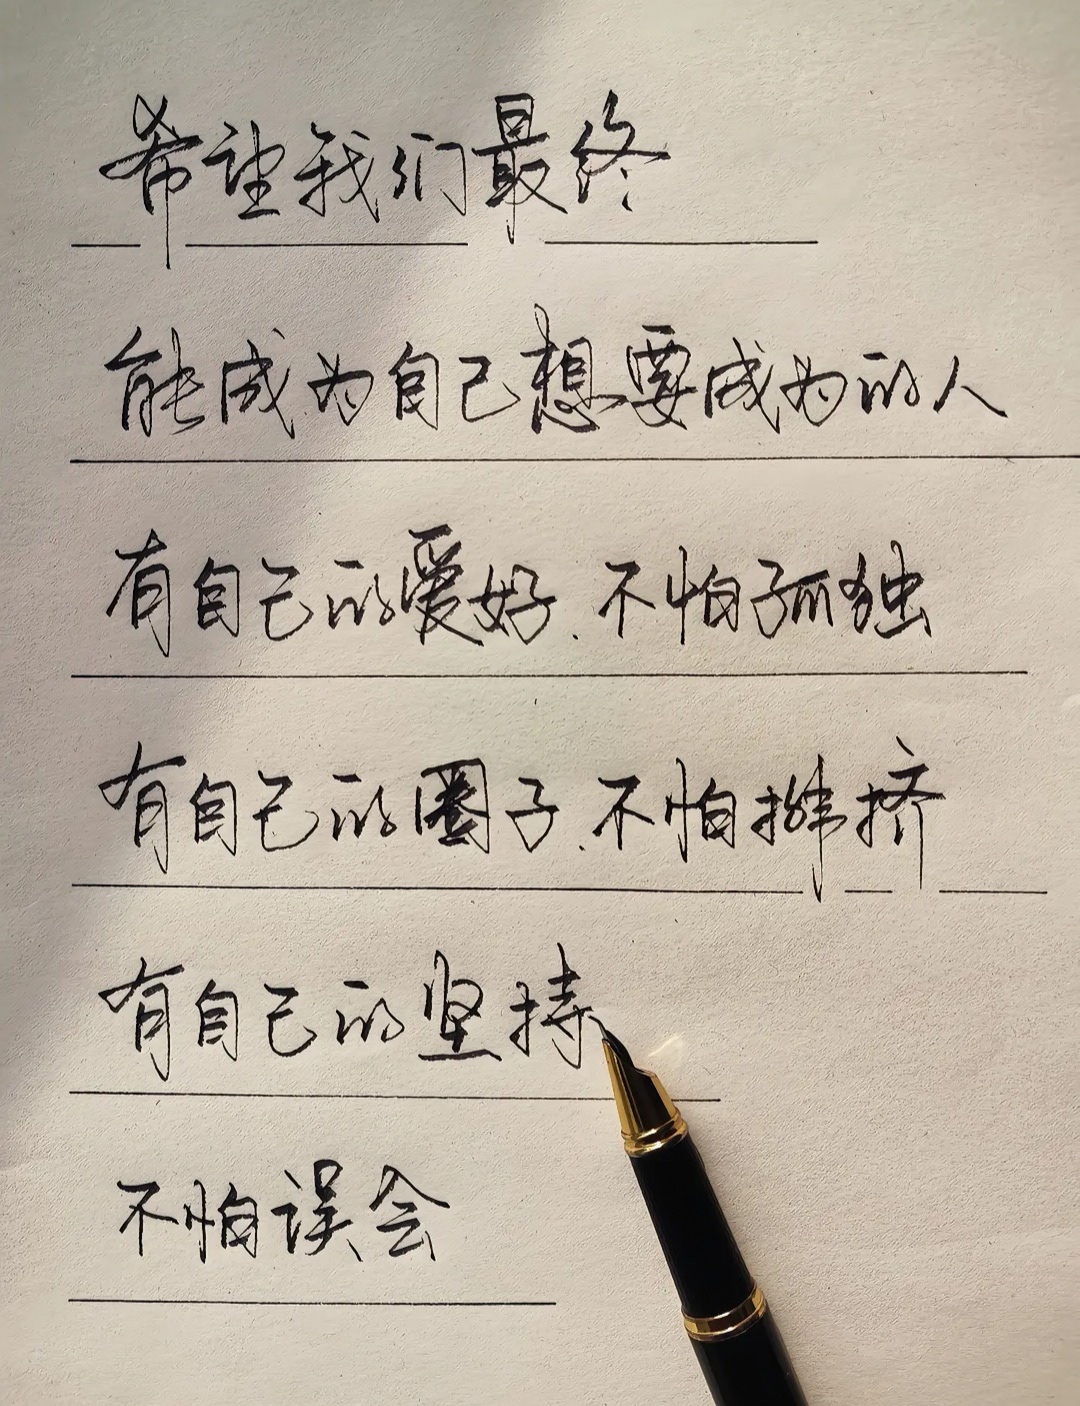 希望我们最终
能成为自己想要成为的人
有自己的爱好、不怕孤独
有自己的圈子、不怕排挤
有自己的坚持
不怕误会